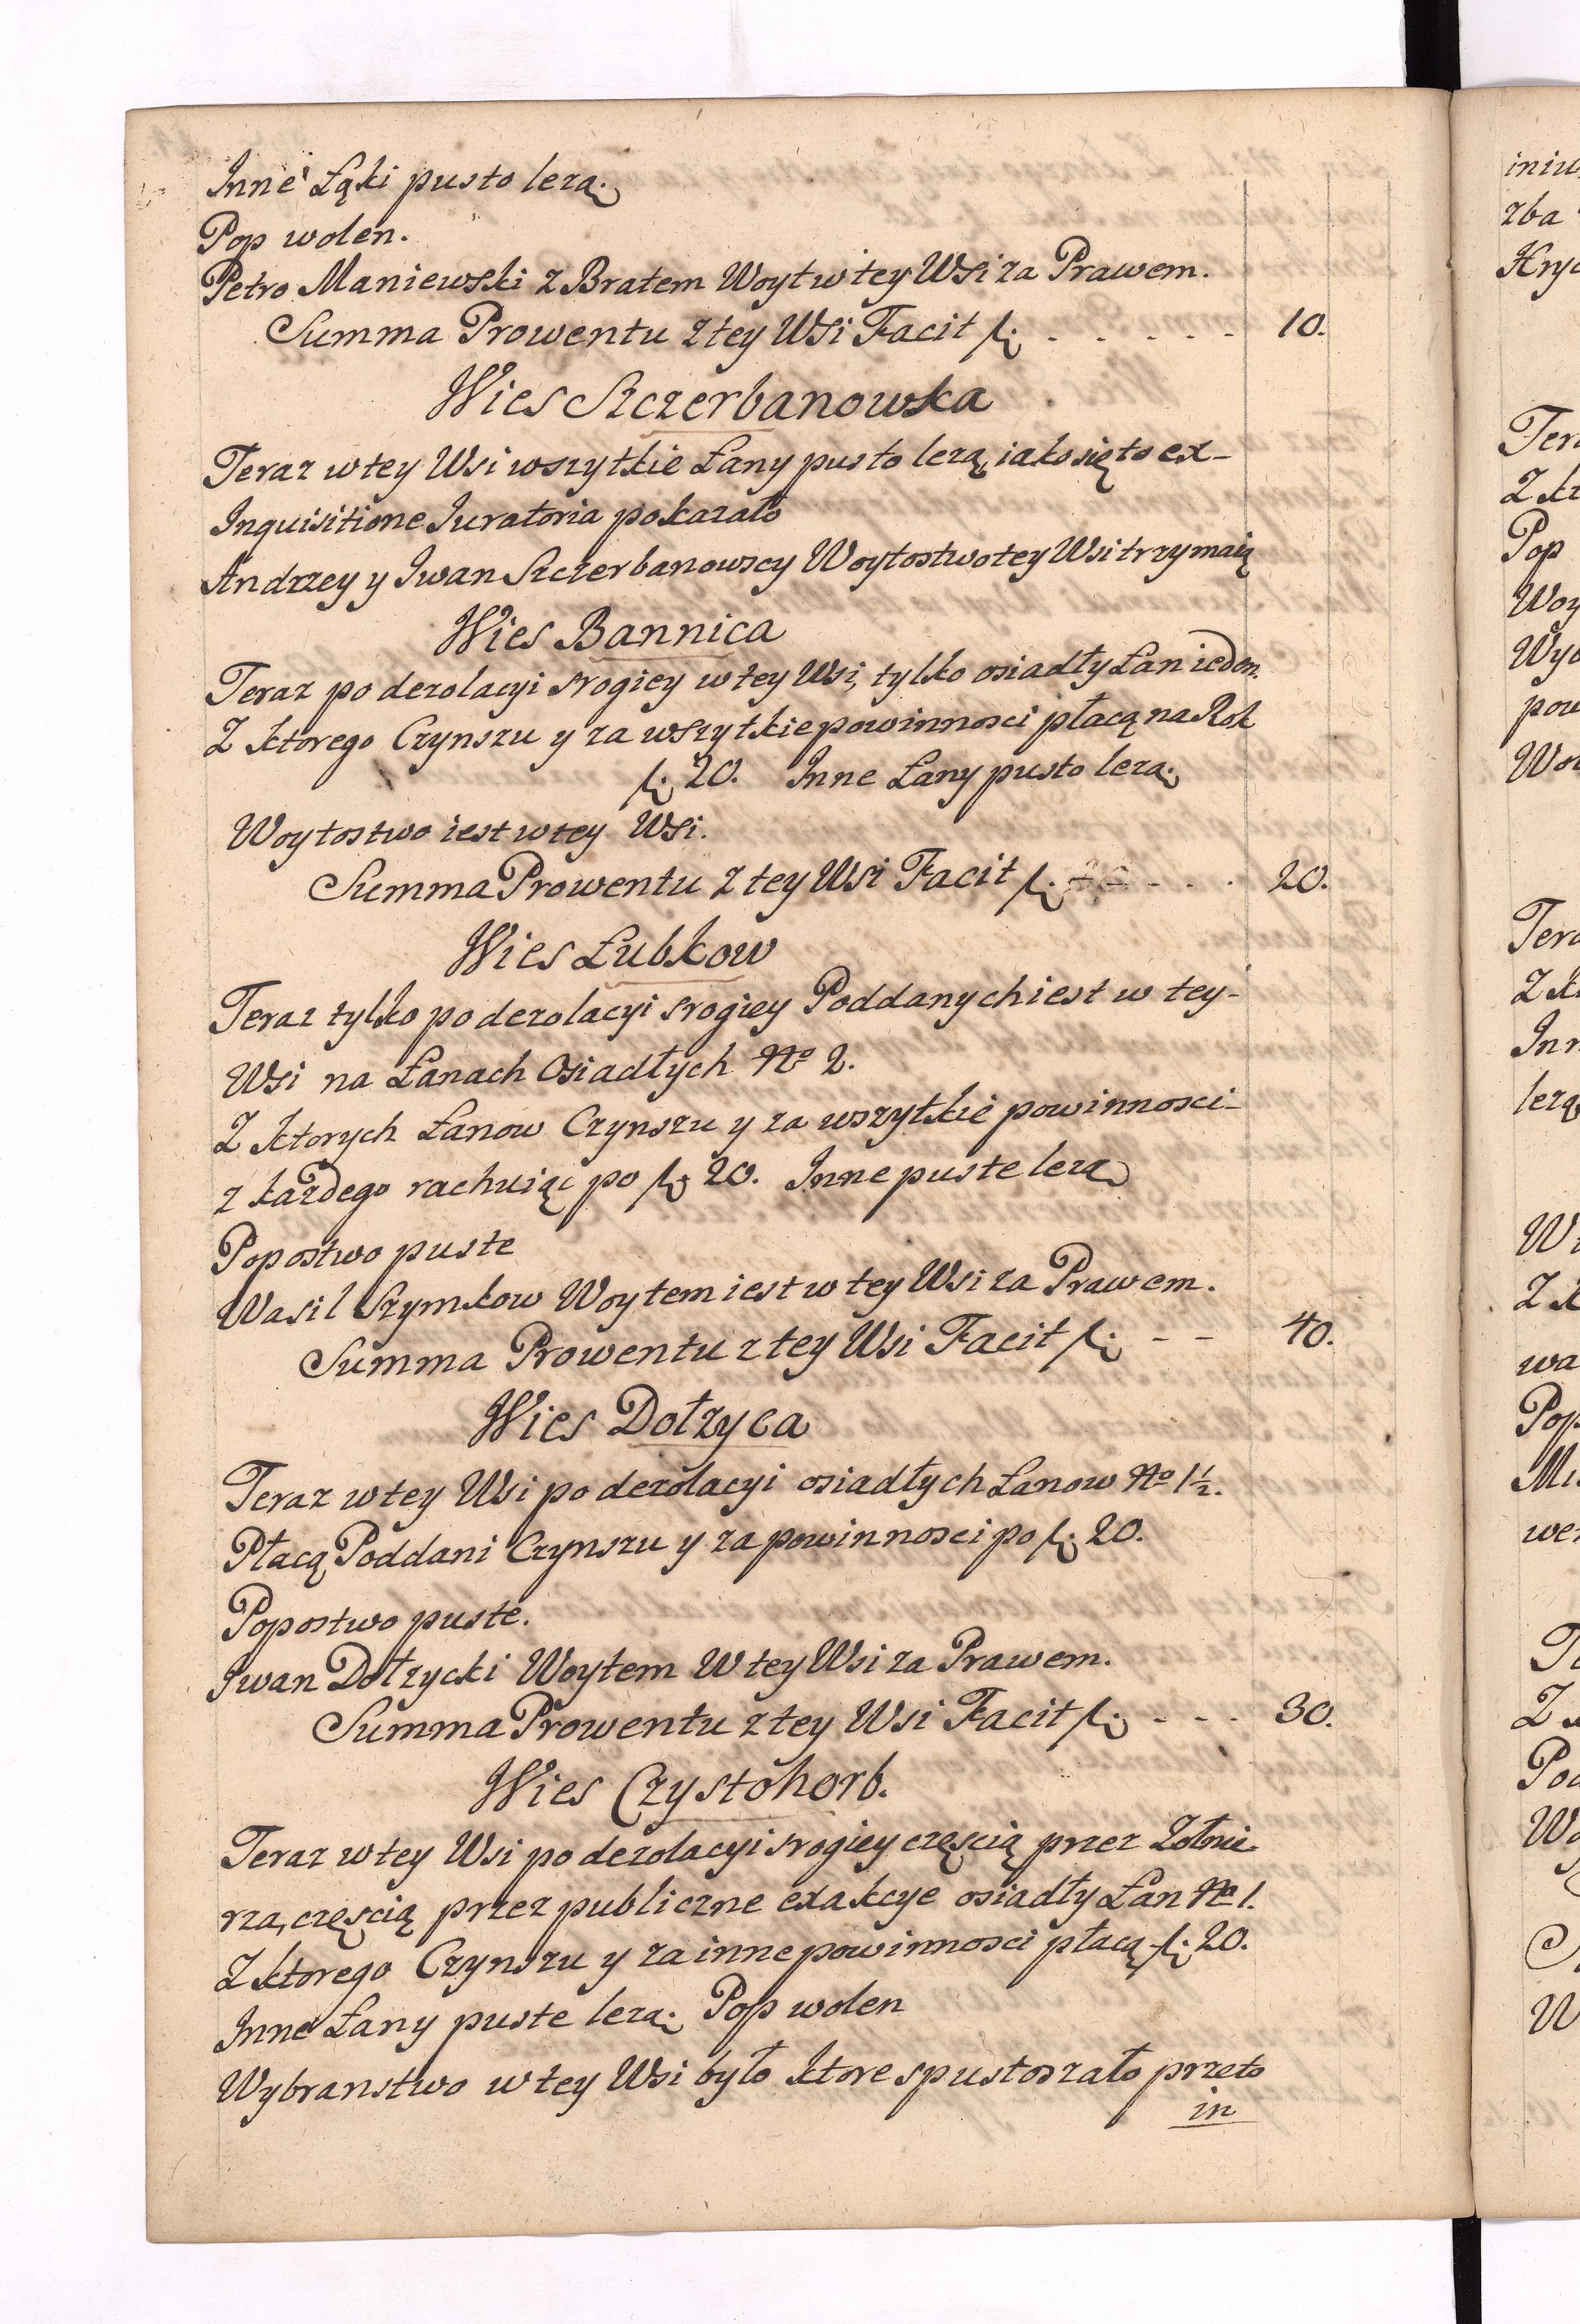 Inne Łąki pusto lezą.
Pop wolen.
Petro Maniewski z Bratem Woyt w tey Wsi za Prawem.
Summa Prowentu z tey Wsi Facit f. - - - - - 10.
Wies Szczerbanowska
Teraz w tey Wsi wszytkie Łany pusto lezą, iako się to ex-
Inquisitione Juratoria pokazało
Andrzey y Iwan Szczerbanowscy Woytostwo tey Wsi trzymaią
Wies Bannica
Teraz po dezolacyi srogiey w tey Wsi, tylko osiadły Łan ieden.
Z ktorego Czynszu y za wszytkie powinnosci płacą na Rok
f. 20. Inne Łany pusto lezą.
Woytostwo iest w tey Wsi.
Summa Prowentu z tey Wsi Facit f. - - - 20.
Wies Łubkow
Teraz tylko po dezolacyi srogiey Poddanych iest w tey-
Wsi na Łanach Osiadłych No 2.
Z ktorych Łanow Czynszu y za wszytkie powinnosci-
z kazdego rachuiąc po f. 20. Inne puste lezą
Popostwo puste
Wasil Szymkow Woytem iest w tey Wsi za Prawem.
Summa Prowentu z tey Wsi Facit f. - - 40.
Wies Dołzyca
Teraz w tey Wsi po dezolacyi osiadłych Łanow No 1½.
Płacą Poddani Czynszu y za powinnosci po f. 20.
Popostwo puste.
Iwan Dołzycki Woytem W tey Wsi za Prawem.
Summa Prowentu z tey Wsi Facit f. - - - 30.
Wies Czystohorb.
Teraz w tey Wsi po dezolacyi srogiey częścią przez Zołnie
rza, częścią przez publiczne exakcye osiadły Łan No 1.
Z ktorego Czynszu y za inne powinnosci płacą f. 20.
Inne Łany puste lezą. Pop wolen
Wybranstwo w tey Wsi było ktore spustoszało przeto
in